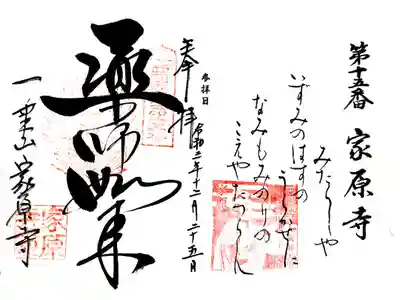 第十五番 家原寺
みたらしや
いずみのはすの
うらかぜに
なみもみのりの
こえやたつらん
参拝日
令和二年十二月二十五日
奉拝
薬師如来
一乗山 家原寺